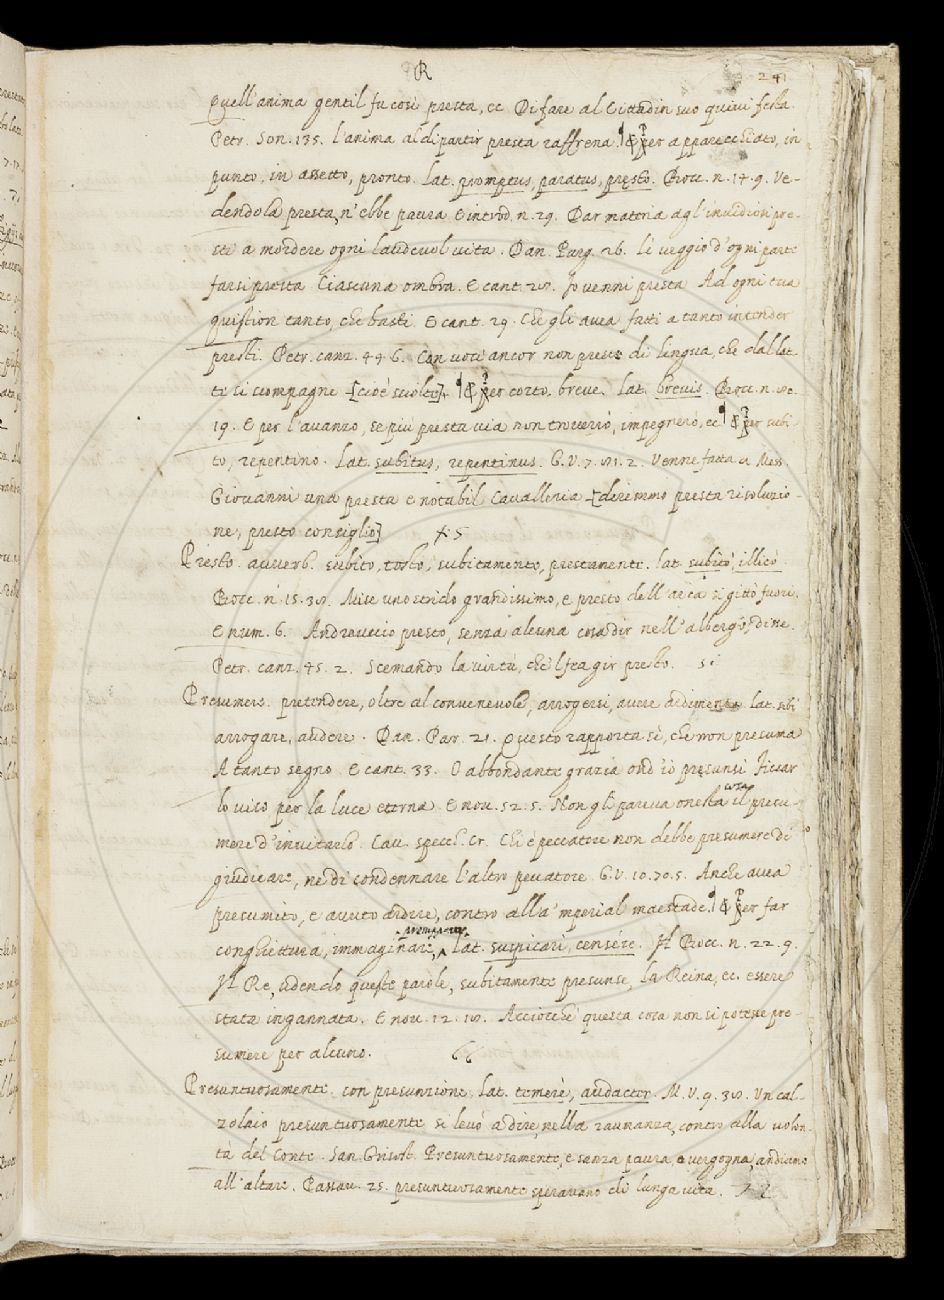 R
241
Quell'anima gentil fu così presta, ec. Di fare al Cittadin suo quivi festa.
Petr. Son. 135. l'anima al dipartir presta raffrena. ¶ Per apparecchiato, in
punto, in assetto, pronto. Lat. promptus, paratus, presto. Bocc. n. 14. 9. Ve-
dendola presta, n'ebbe paura E introd. n. 29. Dar materia agl'invidiosi pre-
sti a mordere ogni laudevol vita. Dan. Purg. 26. Lì veggio d'ogni parte
farsi presta Ciascuna ombra. E cant. 28. Io venni presta Ad ogni tua
question tanto, che basti. E cant. 29. Che gli avea fatti a tanto intender
presti. Petr. canz. 44. 6. Con voci ancor non preste di lingua, che dal lat-
te si scompagne [cioè sciolte]. ¶ Per corto, breve. Lat. brevis. Bocc. n. 80.
19. E per l'avanzo, se più presta via non troverrò, impegnerò, ec. ¶ Per subi-
to, repentino. Lat. subitus, repentinus. G. V. 7. 81. 2. Venne fatta a Mess.
Giovanni una presta e notabil Cavalleria [diremmo presta risoluzio-
ne, presto consiglio]
Presto. avverb. subito, tosto, subitamente, prestamente. lat. subitò, illicò.
Bocc. n. 15. 38. Mise uno strido grandissimo, e presto dell'arca si gittò fuori.
E num. 6. Andreuccio presto, senza alcuna cosa dir nell'albergo, disse.
Petr. canz. 45. 2. Scemando la virtù, che 'l fea gir presto.
Presumere. pretendere, oltre al convenevole, arrogersi, avere ardimento. Lat. sibi
arrogare, audere. Dan. Par. 21. Questo rapporta sì, che non presuma
A tanto segno. E cant. 33. O abbondante grazia ond'io presunsi Ficcar
lo viso per la luce eterna E nov. 52. 5. Non gli pareva onesta cosa il presu-
mere d'invitarlo. Cav. specch. Cr. Chi è peccatore non debbe presumere di
giudicare, nè di condennare l'altro peccatore. G. V. 10. 70. 5. Anche avea
presumito, e avuto ardire, contro alla 'mperial maestade. ¶ Per far
conghiettura, immaginare, Lat. suspicari, censere. Il Bocc. n. 22. 9.
Il Re, udendo queste parole, subitamente presunse, la Reina, ec. essere
stata ingannata. E nov. 12. 18. Acciocchè questa cosa non si potesse pre-
sumere per alcuno.
Presuntuosamente. con presunzione. Lat. temerè, audacter. M. V. 9. 38. Un cal-
zolaio presuntuosamente si levò a dire, nella raunanza, contro alla volon-
tà del Conte. San. Grisost. Presuntuosamente, e sanza paura, e vergogna, andiamo
all'altare. Passav. 25. presuntuosamente speravano di lunga vita.